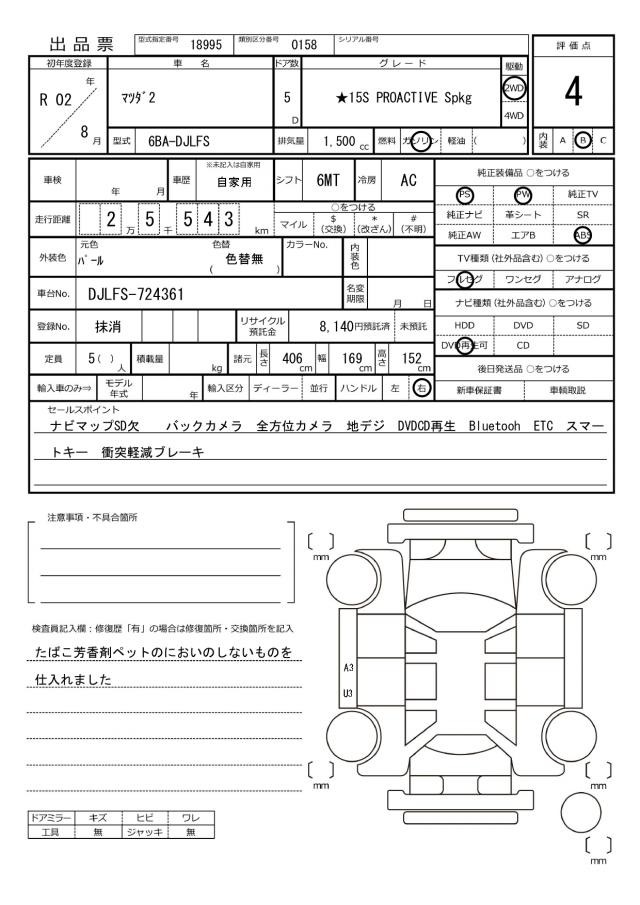 出品票 型式指定番号 18995 類別区分番号 0158 シリアル番号
評価点
4
初年度登録 車名 ドア数 グレード 駆動
R 02 年 8 月 ﾏﾂﾀﾞ2 5 D ★15S PROACTIVE Spkg 2WD
4WD
型式 6BA-DJLFS 排気量 1,500 cc 燃料 ガソリン 軽油 ( ) 内装 A B C
車検 年 月 車歴 ※未記入は自家用 自家用 シフト 6MT 冷房 AC
走行距離 2 万 5 千 5 4 3 km
○をつける
マイル $ (交換) * (改ざん) # (不明)
外装色 元色 ﾊﾟｰﾙ 色替 ( 色替無 ) カラーNo. 内装色
車台No. DJLFS-724361 名変期限 月 日
登録No. 抹消 リサイクル預託金 8,140円預託済 未預託
定員 5 ( ) 人 積載量 kg 諸元 長さ 406 cm 幅 169 cm 高さ 152 cm
輸入車のみ⇒ モデル年式 年 輸入区分 ディーラー 並行 ハンドル 左 右
純正装備品 ○をつける
PS PW 純正TV
純正ナビ 革シート SR
純正AW エアB ABS
TV種類 (社外品含む) ○をつける
フルセグ ワンセグ アナログ
ナビ種類 (社外品含む) ○をつける
HDD DVD SD
DVD再生可 CD
後日発送品 ○をつける
新車保証書 車輌取説
セールスポイント
ナビマップSD欠 バックカメラ 全方位カメラ 地デジ DVDCD再生 Bluetooh ETC スマー
トキー 衝突軽減ブレーキ
注意事項・不具合箇所
検査員記入欄：修復歴「有」の場合は修復箇所・交換箇所を記入
たばこ芳香剤ペットのにおいのしないものを
仕入れました
ドアミラー キズ ヒビ ワレ
工具 無 ジャッキ 無
〔 〕 mm
〔 〕 mm
A3
U3
〔 〕 mm
〔 〕 mm
〔 〕 mm